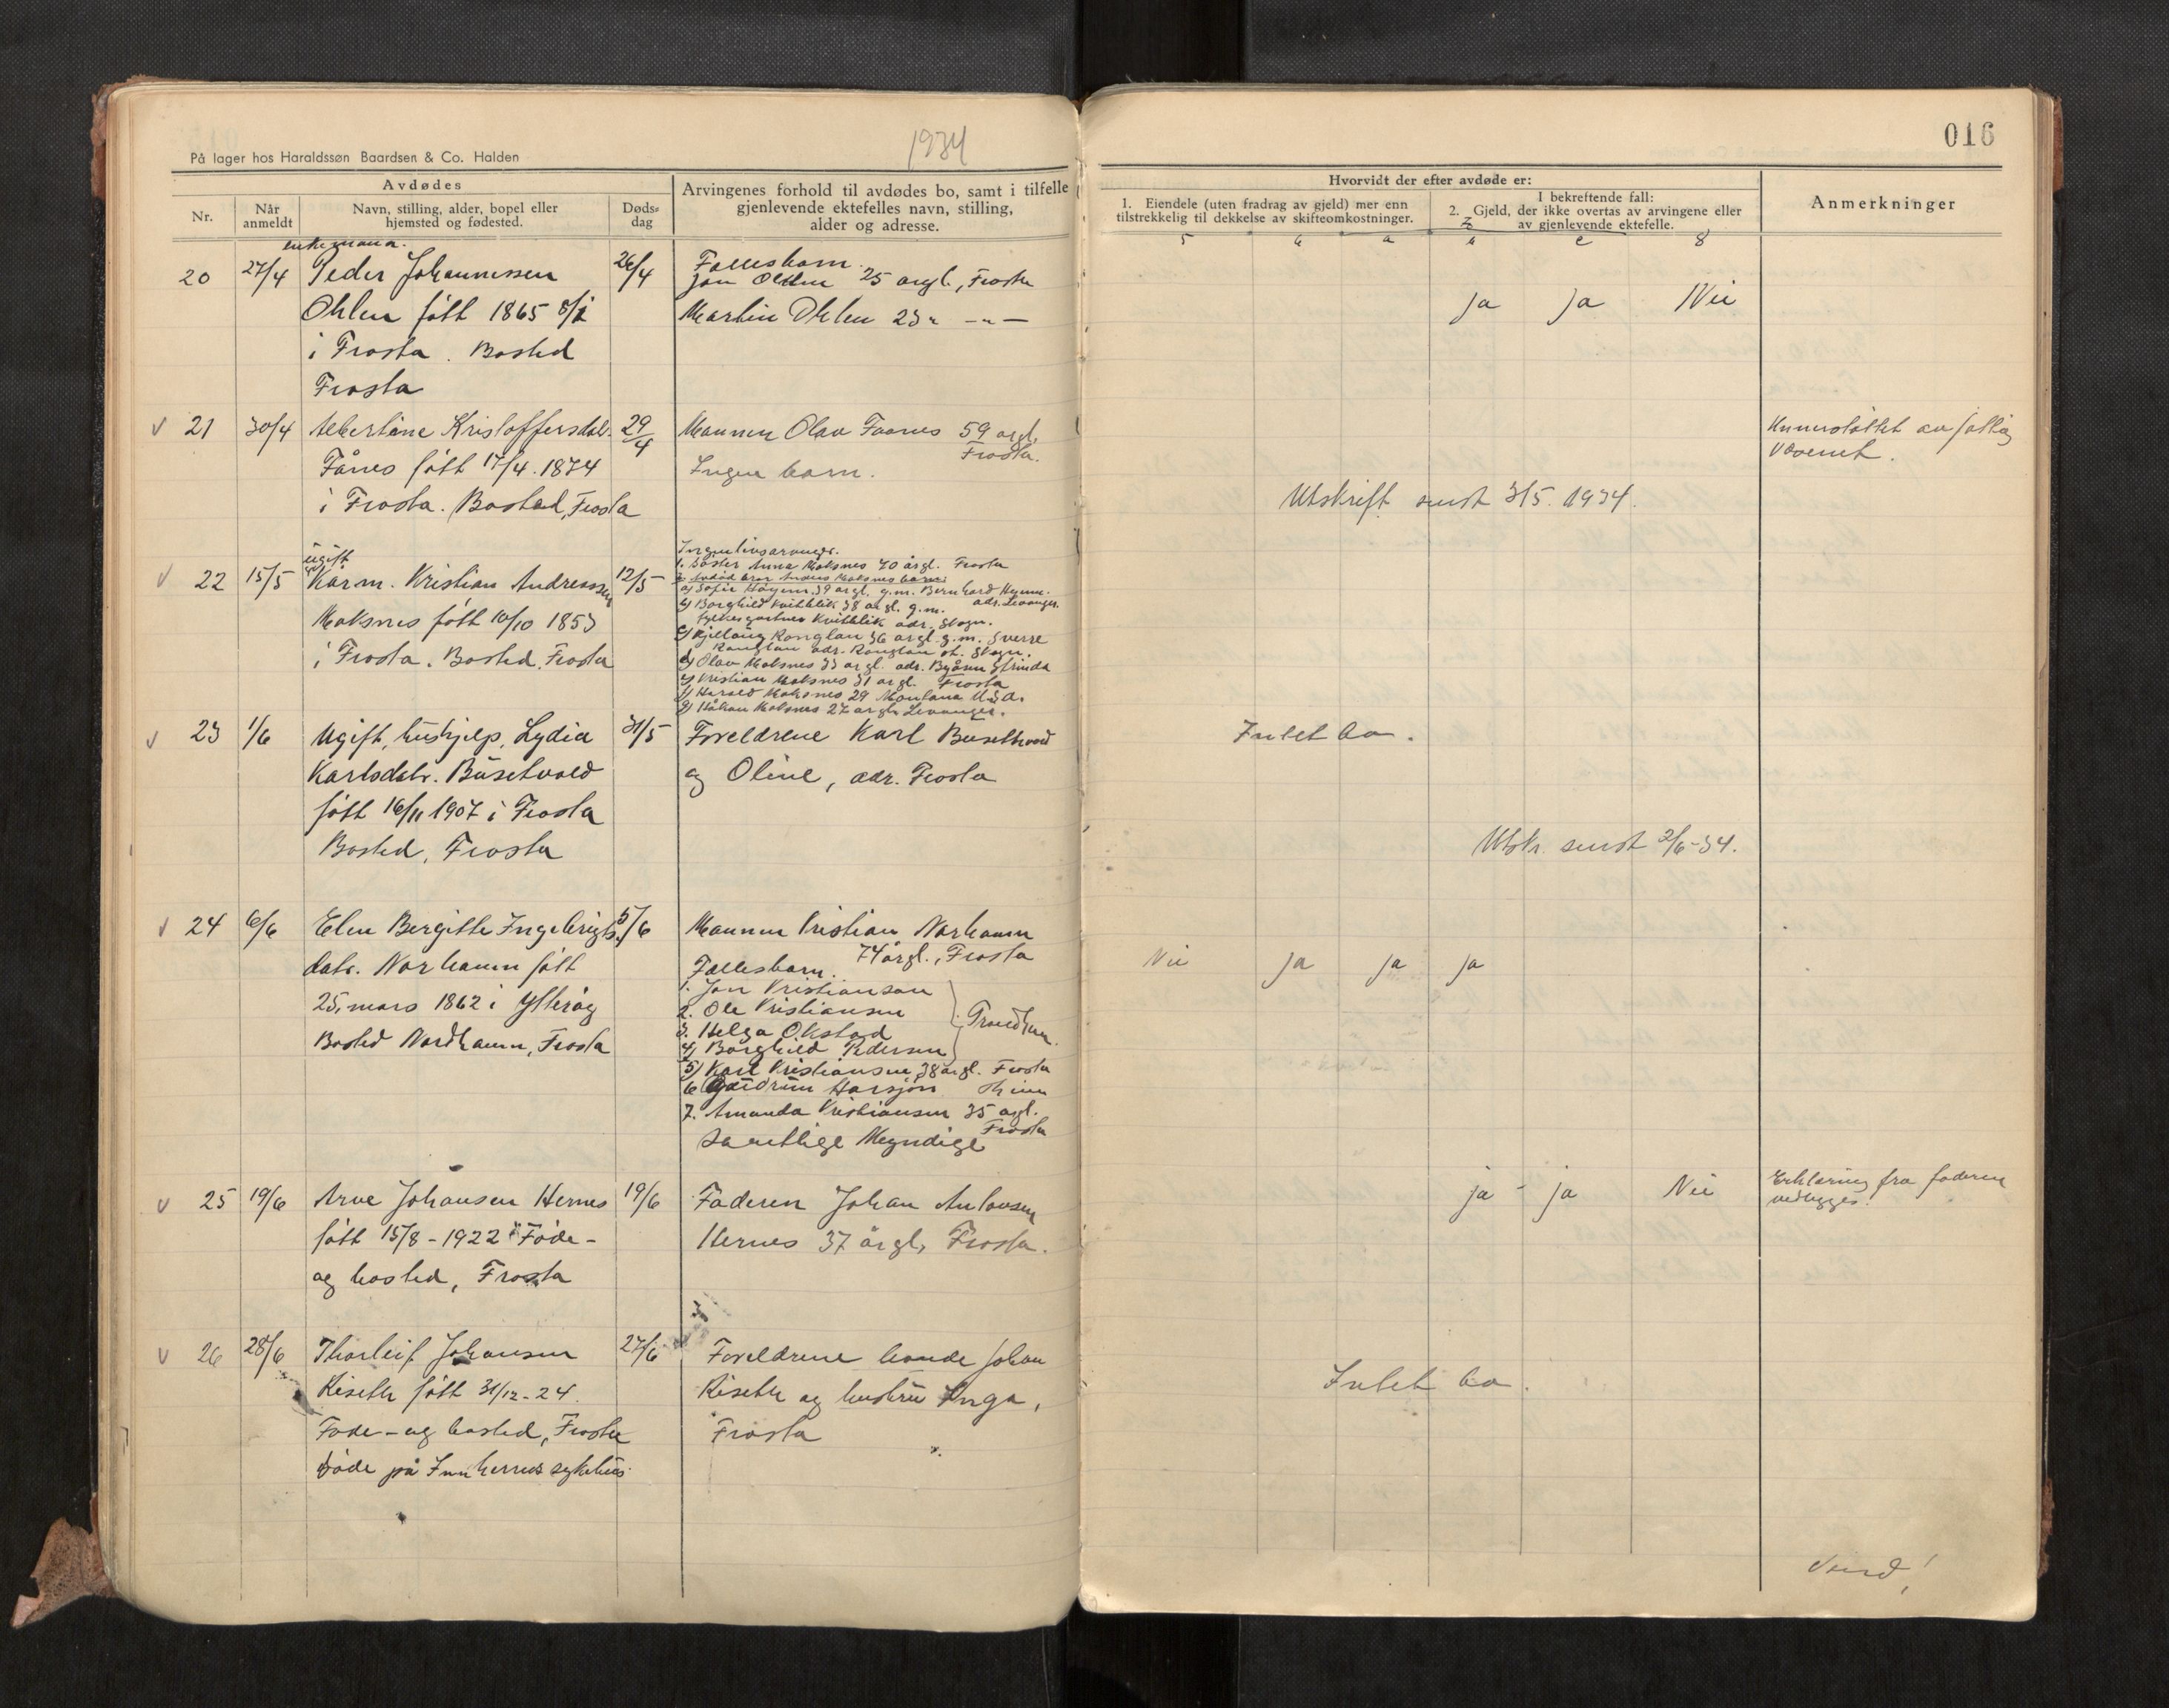 På lager hos Haraldssøn Baardsen & Co. Halden
1934
Avdødes
Nr.
Når anmeldt
Navn, stilling, alder, bopel eller
hjemsted og fødested.
Døds-
dag
Arvingenes forhold til avdødes bo, samt i tilfelle
gjenlevende ektefelles navn, stilling,
alder og adresse.
enkemann.
20 27/4 Peder Johannessen 26/4
Ohlen født 1865
i Frosta. Bosted
Frosta
Fællesbarn
Jon Ohlen 25 årgl., Frosta
Martin Ohlen 23 " — " —
v 21 30/4 Albertine Kristoffersdatr. 29/4
Fånes født 17/4. 1874
i Frosta. Bosted, Frosta
Mannen Olav Faanes 59 årgl.
Frosta.
Ingen barn.
ugift
v 22 15/5 Kårm. Kristian Andreassen 12/5
Moksnes født 10/10 1853
i Frosta. Bosted, Frosta
Ingen livsarvinger.
1. Søster Anna Moksnes 70 årgl. Frosta
2. Avdød bror Anders Moksnes barn:
a) Sofie 39 årgl. g.m. Bernhard
adr. Levanger.
b) Borghild Kvitblik 38 årgl. g.m.
fylkesgartner Kvitblik adr. Skogn.
c) Ronglan 36 årgl. g.m. Sverre
Ronglan adr. Ronglan st. Skogn.
d) Olav Moksnes 33 årgl. adr. Strinda
e) Kristian Moksnes 31 årgl. Frosta
f) Harald Moksnes 29 Montana U.S.A.
g) Håkon Moksnes 27 årgl. Levanger.
v 23 1/6 Ugift, hushjelp, Lydia 31/5
Karlsdatr. Busetvold
født 16/11 1907 i Frosta
Bosted, Frosta
Foreldrene Karl Busetvold
og Oline, adr. Frosta
v 24 6/6 Elen Bergitte Ingebrigts 5/6
datr. Norhamn født
25. mars 1862 i Ytterøy
Bosted Nordhamn, Frosta
Mannen Kristian Norhamn
74 årgl., Frosta
Fællesbarn.
1. Jon Kristiansen
2. Ole Kristiansen
3. Helga Okstad
4) Borghild Pedersen
Trondheim.
5) Karl Kristiansen 38 årgl. Frosta
6 Gudrun Harsjøn
7. Amanda Kristiansen 35 årgl.
Frosta
Samtlige Myndige
v 25 19/6 Arve Johansen Hernes 19/6
født 15/8 - 1922 Føde-
og bosted, Frosta
Faderen Johan Antonsen
Hernes 37 årgl, Frosta.
v 26 28/6 Thorleif Johansen 27/6
Riseth født 31/12 - 24.
Føde- og bosted, Frosta
døde på Innherred sykehus
Foreldrene Johan
Riseth og hustru Inga,
Frosta
016
Hvorvidt der efter avdøde er:
1. Eiendele (uten fradrag av gjeld) mer enn
tilstrekkelig til dekkelse av skifteomkostninger.
I bekreftende fall:
2. Gjeld, der ikke overtas av arvingene eller
av gjenlevende ektefelle.
Anmerkninger
ja ja Nei
Understøttet av fattig
væsenet.
Utskrift sendt 3/5. 1934.
Intet bo.
Utskr. sendt 2/6-34.
Nei ja ja ja
ja - ja Nei
Erklæring fra faderen
vedlegges.
Intet bo.
Vend!